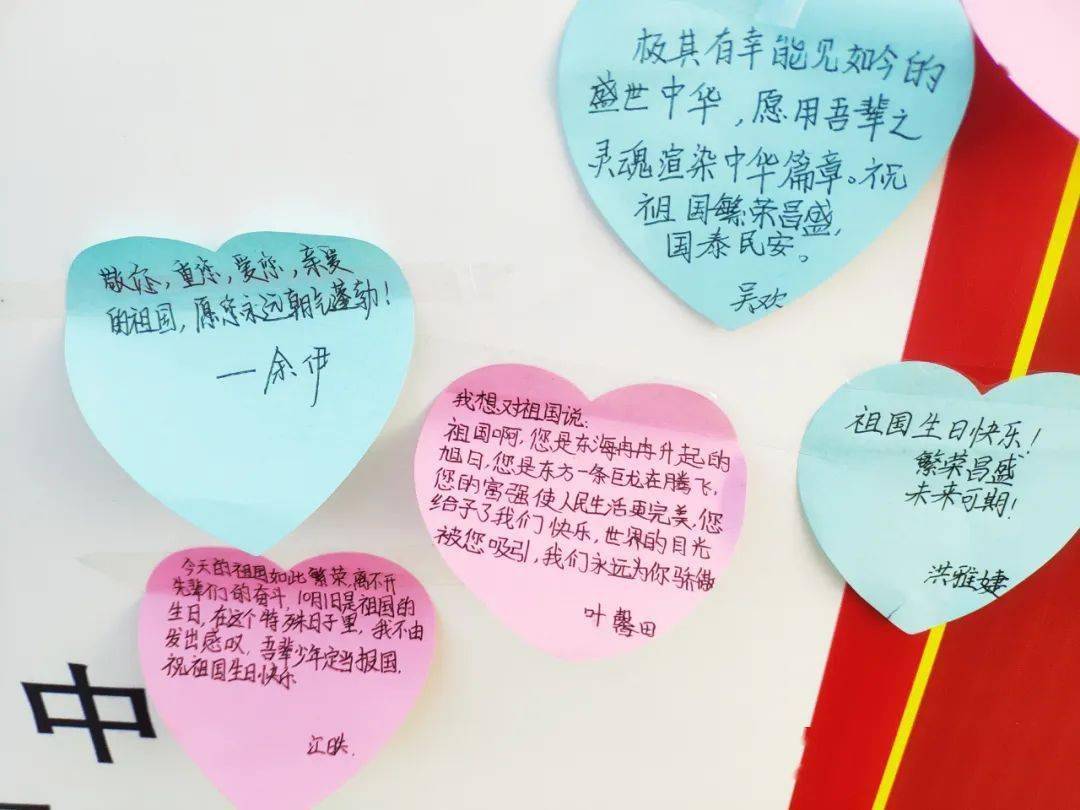 极其有幸能见如今的
盛世中华，愿用吾辈之
灵魂渲染中华篇章。祝
祖国繁荣昌盛，
国泰民安。
吴欢
敬您，重您，爱您，亲爱
的祖国，愿您永远朝气蓬勃！
—余伊
我想对祖国说：
祖国啊，您是东海冉冉升起的
旭日，您是东方一条巨龙在腾飞，
您的富强使人民生活更完美，您
给予了我们快乐，世界的目光
被您吸引，我们永远为你骄傲
叶馨田
祖国生日快乐！
繁荣昌盛
未来可期！
洪雅婕
今天的祖国如此繁荣离不开
先辈们的奋斗，10月1日是祖国的
生日，在这个特殊日子里，我不由
发出感叹，吾辈少年定当报国，
祝祖国生日快乐
江
中